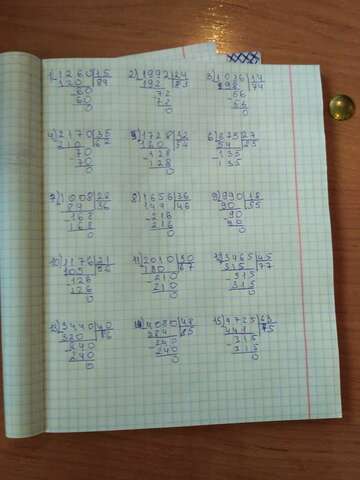 1) 1260|15 2) 1992|24 3) 1036|14
-120 |84 192 |83 98 |74
-60 -72 -56
60 72 56
0 0 0
4) 2170|35 5) 1728|32 6) 675|27
210 |62 160 |54 54 |25
-70 -128 -135
70 128 135
0 0
7) 1008|28 8) 1656|36 9) 990|18
84 |36 144 |46 90 |55
-168 -216 -90
168 216 90
0 0 0
10) 1176|21 11) 2010|30 12) 3465|45
105 |56 180 |67 315 |77
-126 -210 -315
126 210 315
0 0 0
13) 3440|40 14) 4080|48 15) 4725|63
320 |86 384 |85 441 |75
-240 -240 -315
240 240 315
0 0 0